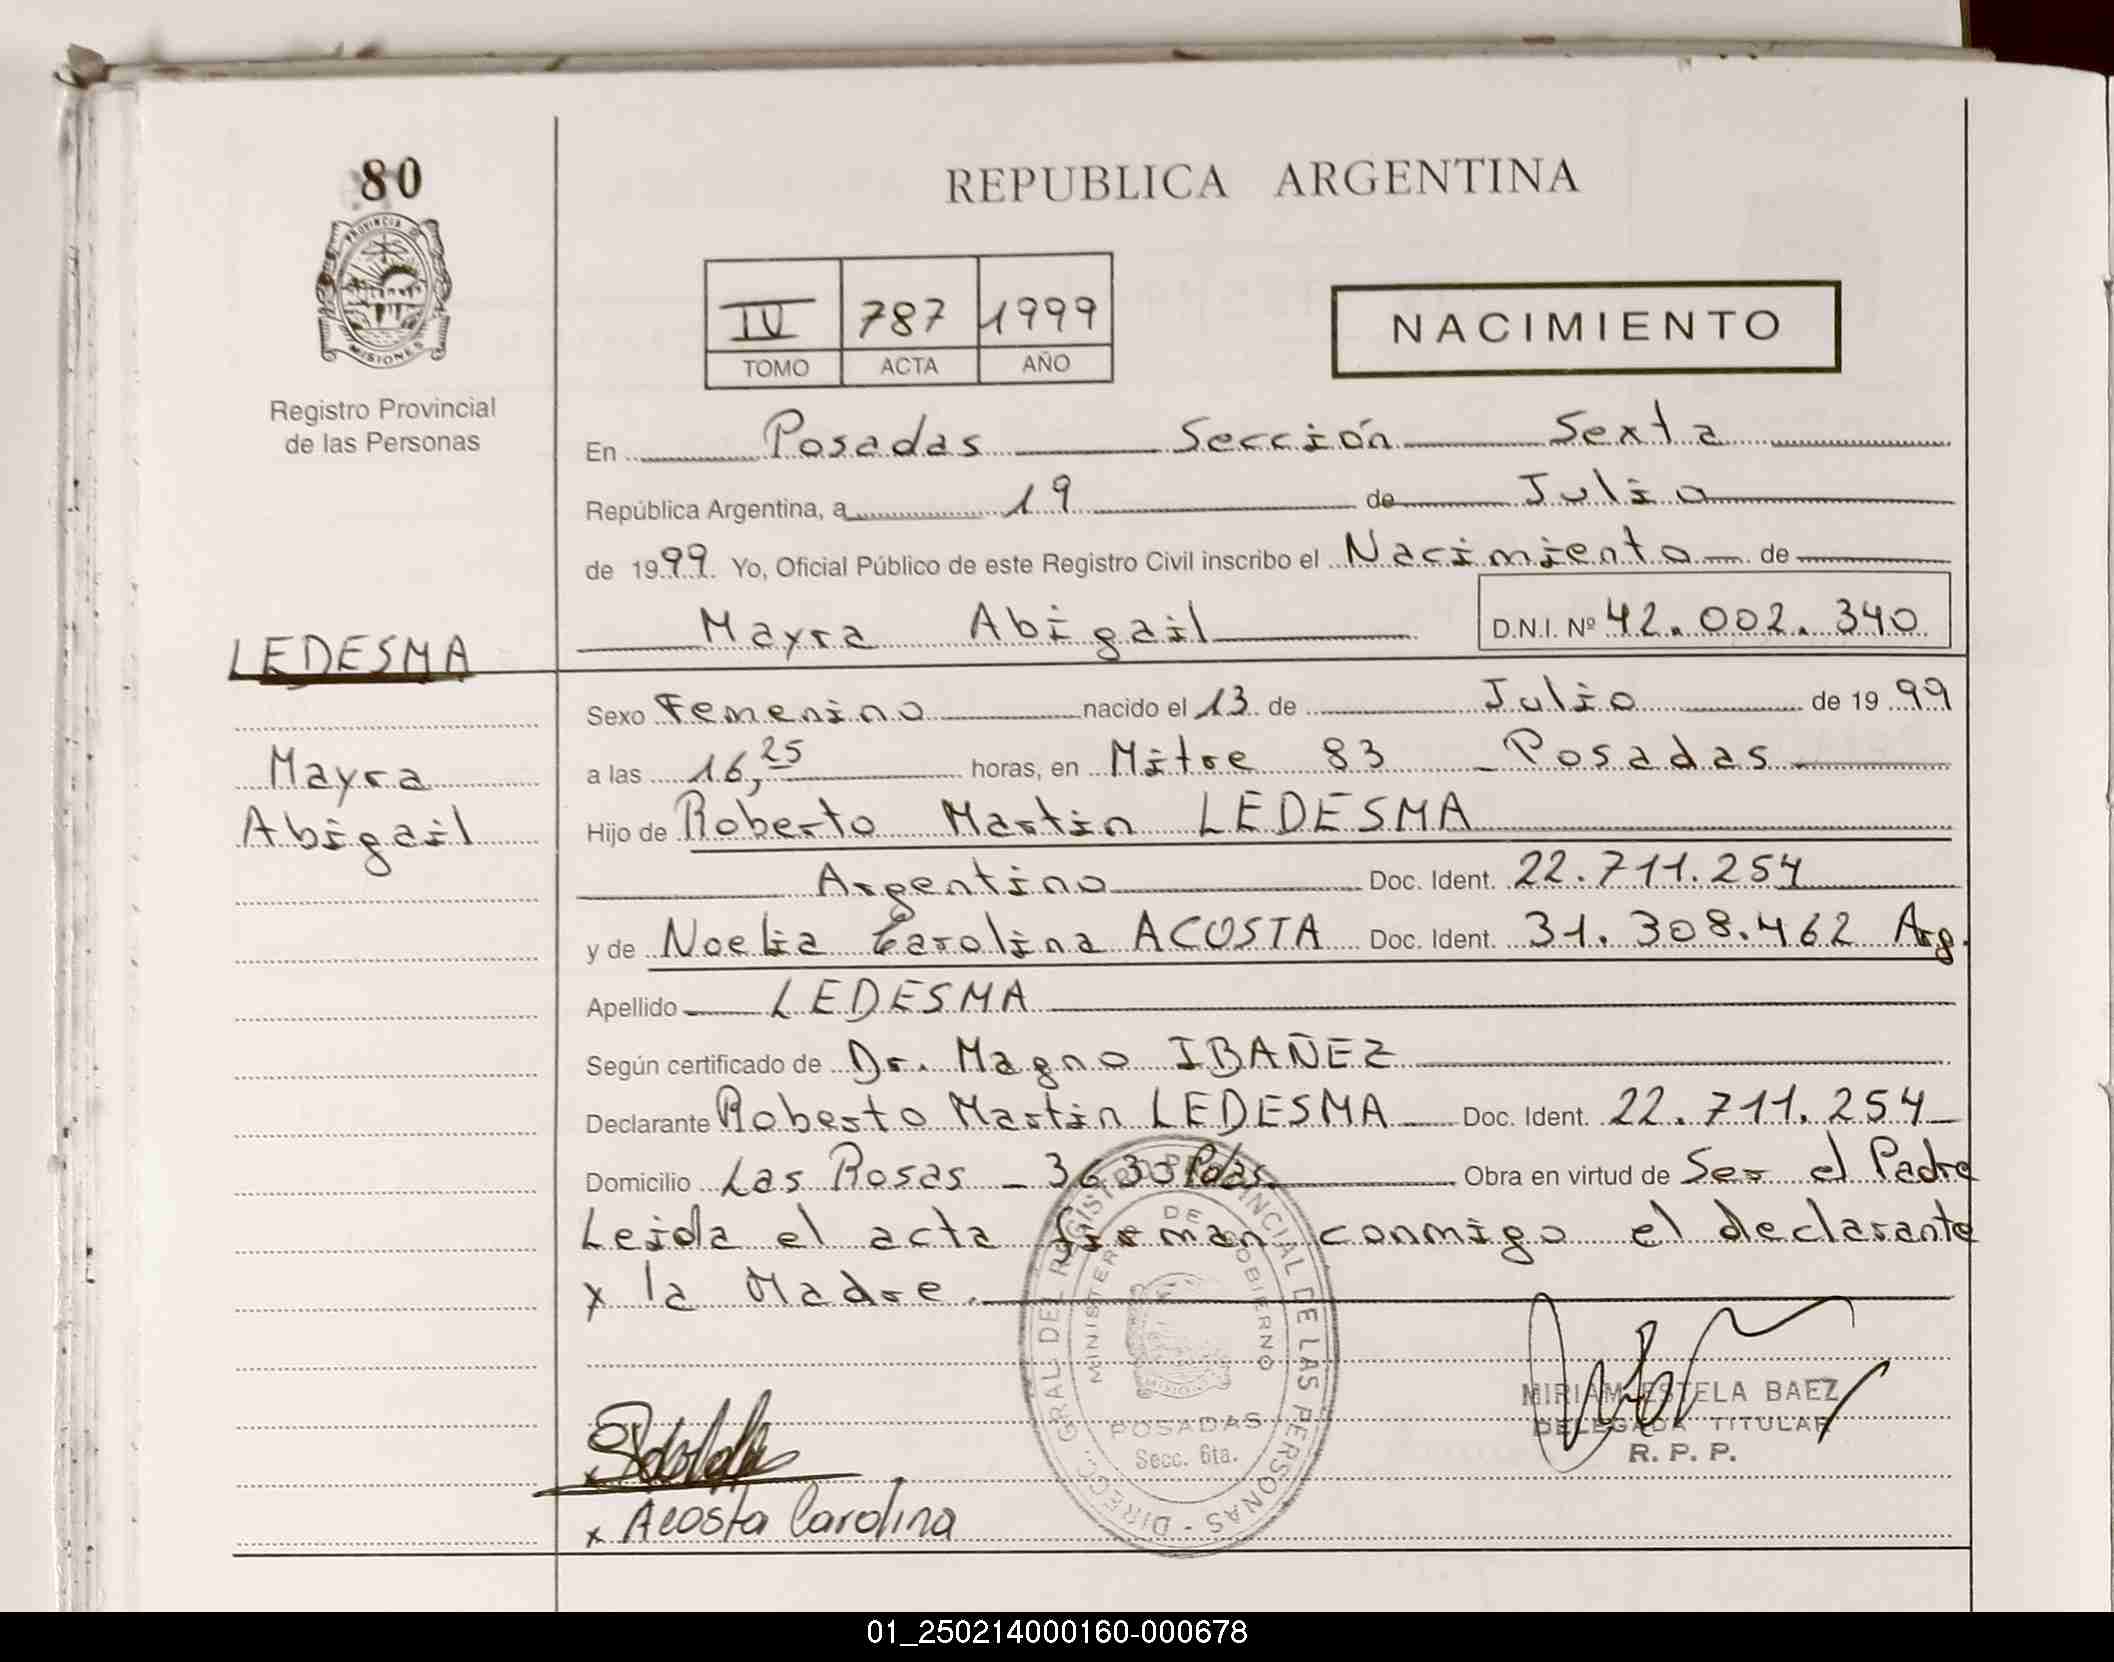 80
PROVINCIA DE
MISIONES
Registro Provincial
de las Personas
REPUBLICA ARGENTINA
IV 787 1999
TOMO ACTA AÑO
NACIMIENTO
En Posadas Sección Sexta
República Argentina, a 19 de Julio
de 1999. Yo, Oficial Público de este Registro Civil inscribo el Nacimiento de
Mayra Abigail D.N.I. Nº 42.002.340
LEDESMA
Mayra
Abigail
Sexo Femenino nacido el 13 de Julio de 1999
a las 16,25 horas, en Mitre 83 - Posadas
Hijo de Roberto Martin LEDESMA
Argentino Doc. Ident. 22.711.254
y de Noelia Carolina ACOSTA Doc. Ident. 31.308.462 Arg.
Apellido LEDESMA
Según certificado de Dr. Magno IBAÑEZ
Declarante Roberto Martin LEDESMA Doc. Ident. 22.711.254
Domicilio Las Rosas - 3630 Pdas. Obra en virtud de Ser el Padre
Leida el acta firman conmigo el declarante
y la Madre.
DIRECC. GRAL DEL REGISTRO PROVINCIAL DE LAS PERSONAS -
MINISTERIO DE GOBIERNO
MISIONES
POSADAS
Secc. 6ta.
MIRIAM ESTELA BAEZ
DELEGADA TITULAR
R. P. P.
x
x Acosta Carolina
01_250214000160-000678